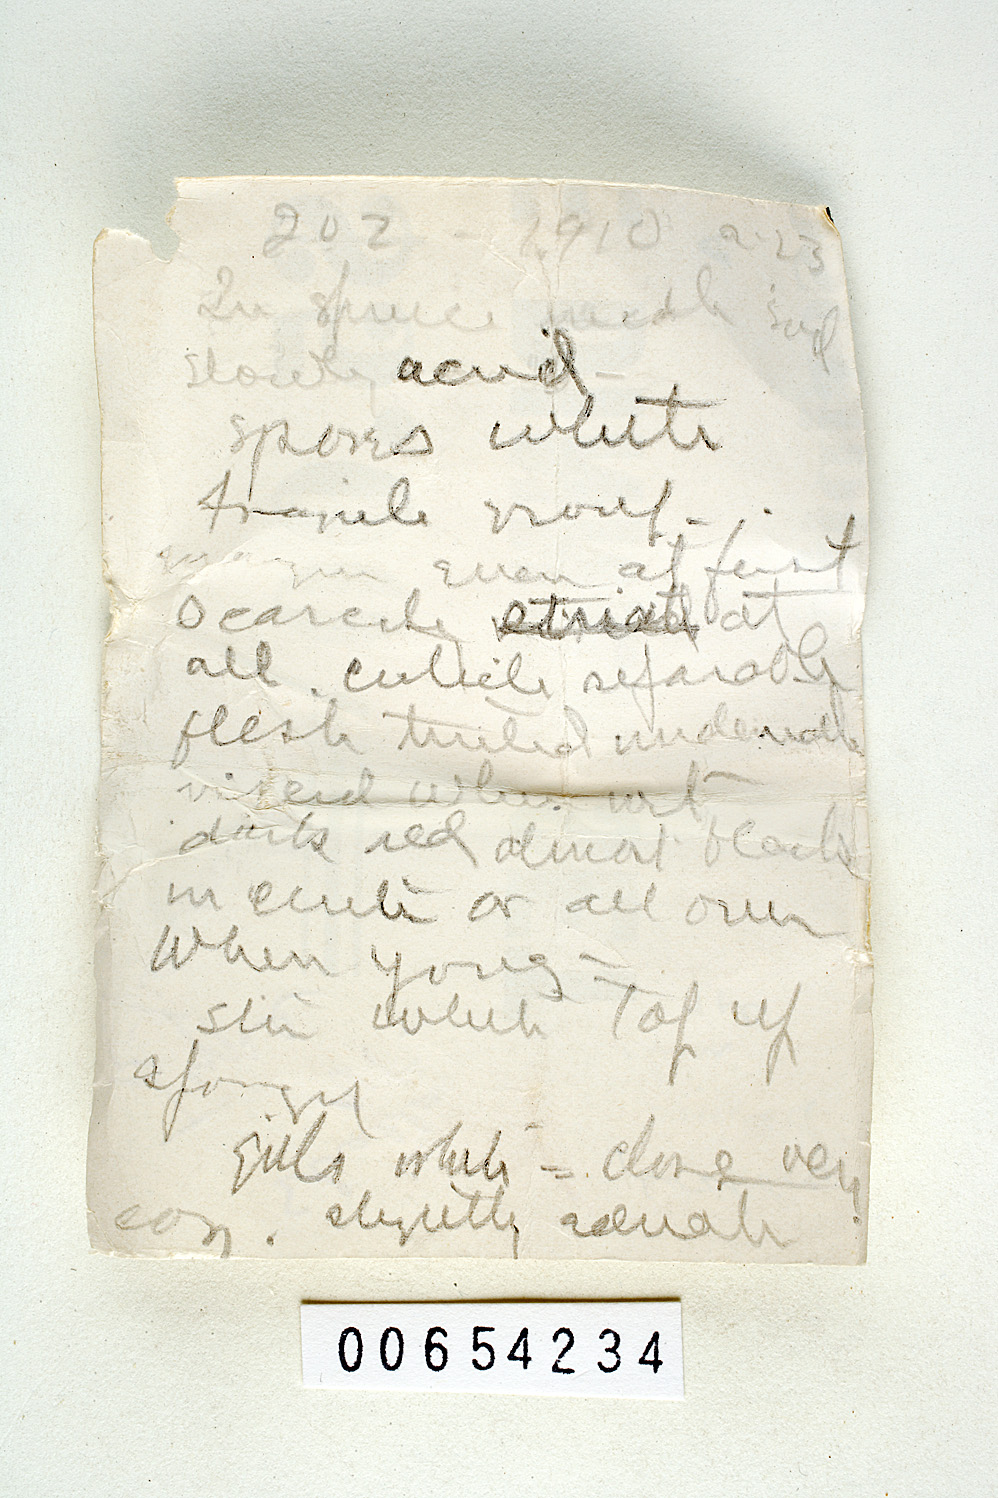 202 - 1910 2.23
In spruce needle sod
slowly acrid -
spores white
fragile group - .
margin even at first
scarcely striate at
all. cuticle separable
flesh tinted underneath
viscid when wet
dark red almost black
in center or all over
when young -
stem white Taf up
spongy
gills white = close very
eog. slightly adnate
00654234